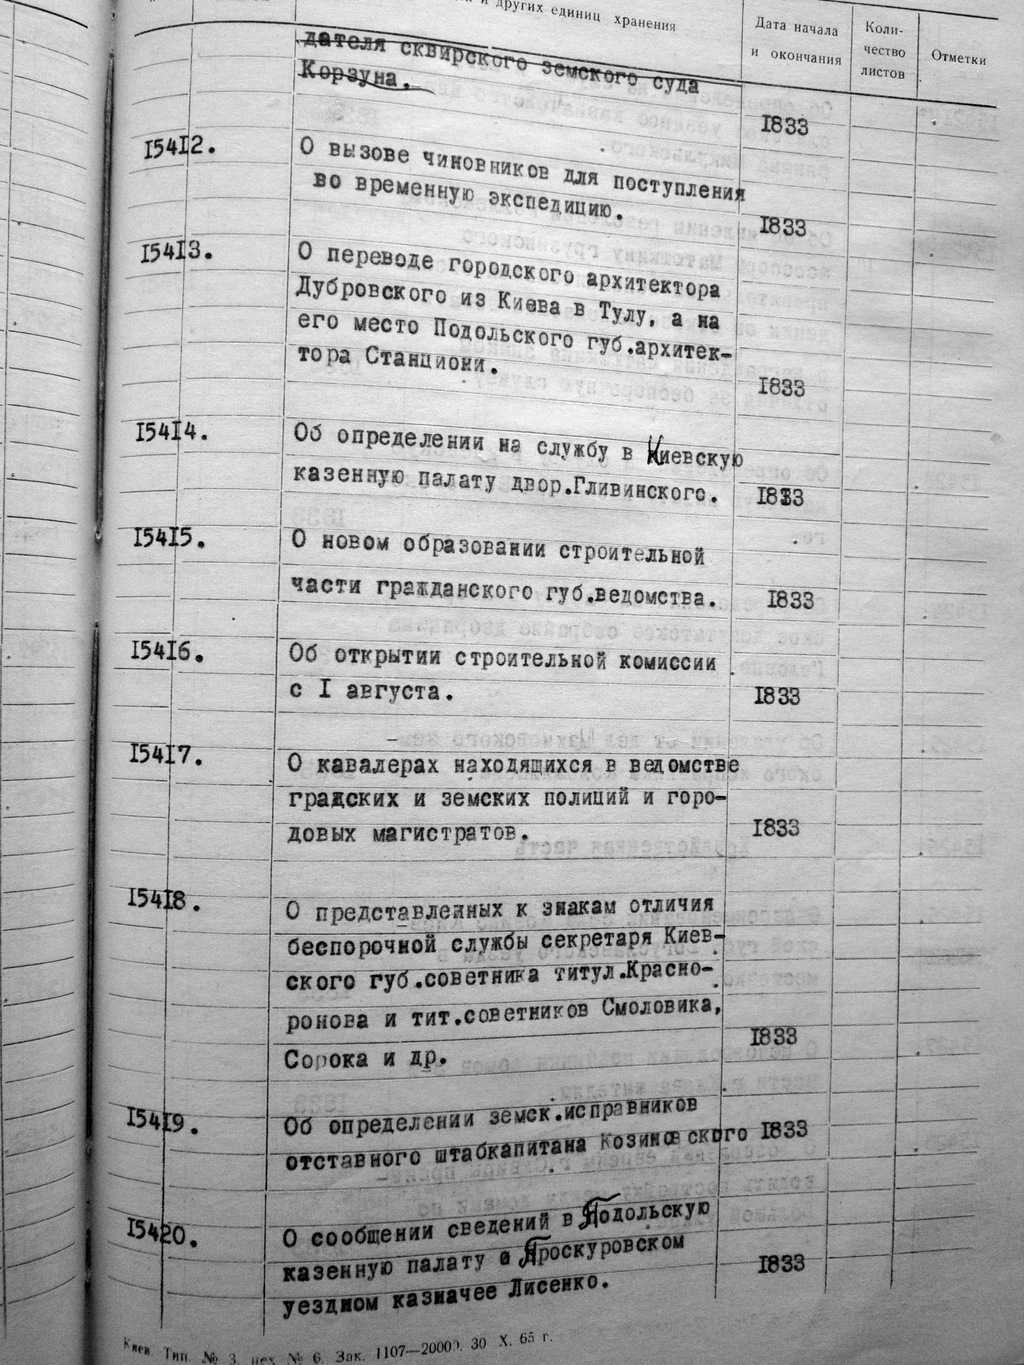 и других единиц хранения
Дата начала
и окончания
Коли-
чество
листов
Отметки
дателя сквирского земского суда
Корзуна.
1833
I5412.
О вызове чиновников для поступления
во временную экспедицию.
1833
I5413.
О переводе городского архитектора
Дубровского из Киева в Тулу, а на
его место Подольского губ.архитек-
тора Станциони.
1833
I5414.
Об определении на службу в Киевскую
казенную палату двор.Гливинского.
1833
I5415.
О новом образовании строительной
части гражданского губ.ведомства.
1833
I5416.
Об открытии строительной комиссии
с I августа.
1833
I5417.
О кавалерах находящихся в ведомстве
градских и земских полиций и горо-
довых магистратов.
1833
I5418.
О представленных к знакам отличия
беспорочной службы секретаря Киев-
ского губ.советника титул.Красно-
ронова и тит.советников Смоловика,
Сорока и др.
1833
I5419.
Об определении земск.исправников
отставного штабкапитана Козиновского
1833
I5420.
О сообщении сведений в Подольскую
казенную палату о Проскуровском
уездном казначее Лисенко.
1833
Киев Тип. № 3, цех № 6. Зак. 1107—20000. 30 X. 65 г.